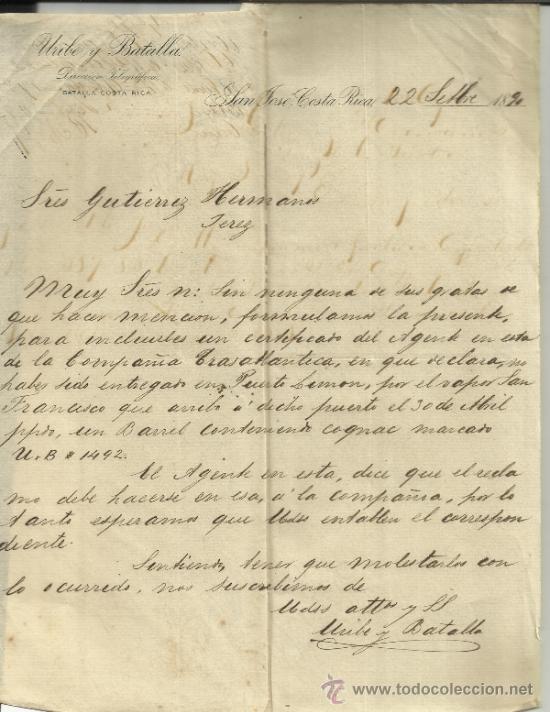 Uribe y Batalla.
Dirección Telegráfica:
BATALLA, COSTA RICA
San José, Costa Rica, 22 Setbre 1890
Sres Gutierrez Hermanos
Jerez
Muy Sres n: Sin ninguna de sus gratas de
que hacer mencion, formulamos la presente,
para incluirles un certificado del Agente en esta
de la Compañia Trasatlantica, en que declara, no
haber sido entregado en Puerto Limon, por el vapor San
Francisco que arribó á dicho puerto el 30 de Abril
ppdo, un Barril conteniendo cognac marcado
U.B # 1492.
El Agente en esta, dice que el recla
mo debe hacerse en esa, á la compañia, por lo
tanto esperamos que Udes entablen el correspon
diente.
Sentiendo, tener que molestarlos con
lo ocurrido, nos suscribimos de
Udes attos y SS
Uribe y Batalla
www.todocoleccion.net